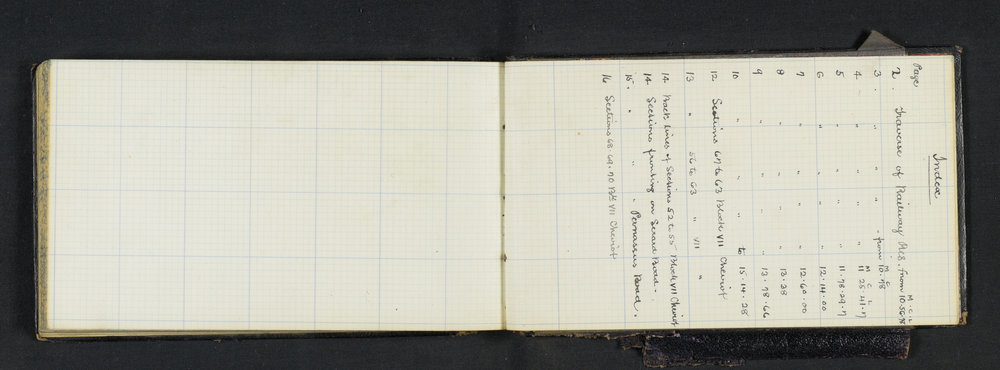 Index
Page
M. C. L
2. Traverse of Railway Res. from 10.56.78
3. " " " " from 10.78
M. C. L
4. " " " " 11 25.41.7
5 " " " " 11.78.29.7
6 " " " " 12.14.00
7 " " " " 12.60.00
8 " " " " 13.28
9 " " " " 13.78.66
10 " " " to 15.14.28
12 Sections 67 to 63 Block VII Cheviot
13 " 56 to 63 " VII "
14 Back lines of Sections 52 to 55 Block VII Cheviot
14 Sections fronting on Road.
15. " " " Parnassus Road.
16 Sections 68.69.70 Blk VII Cheviot